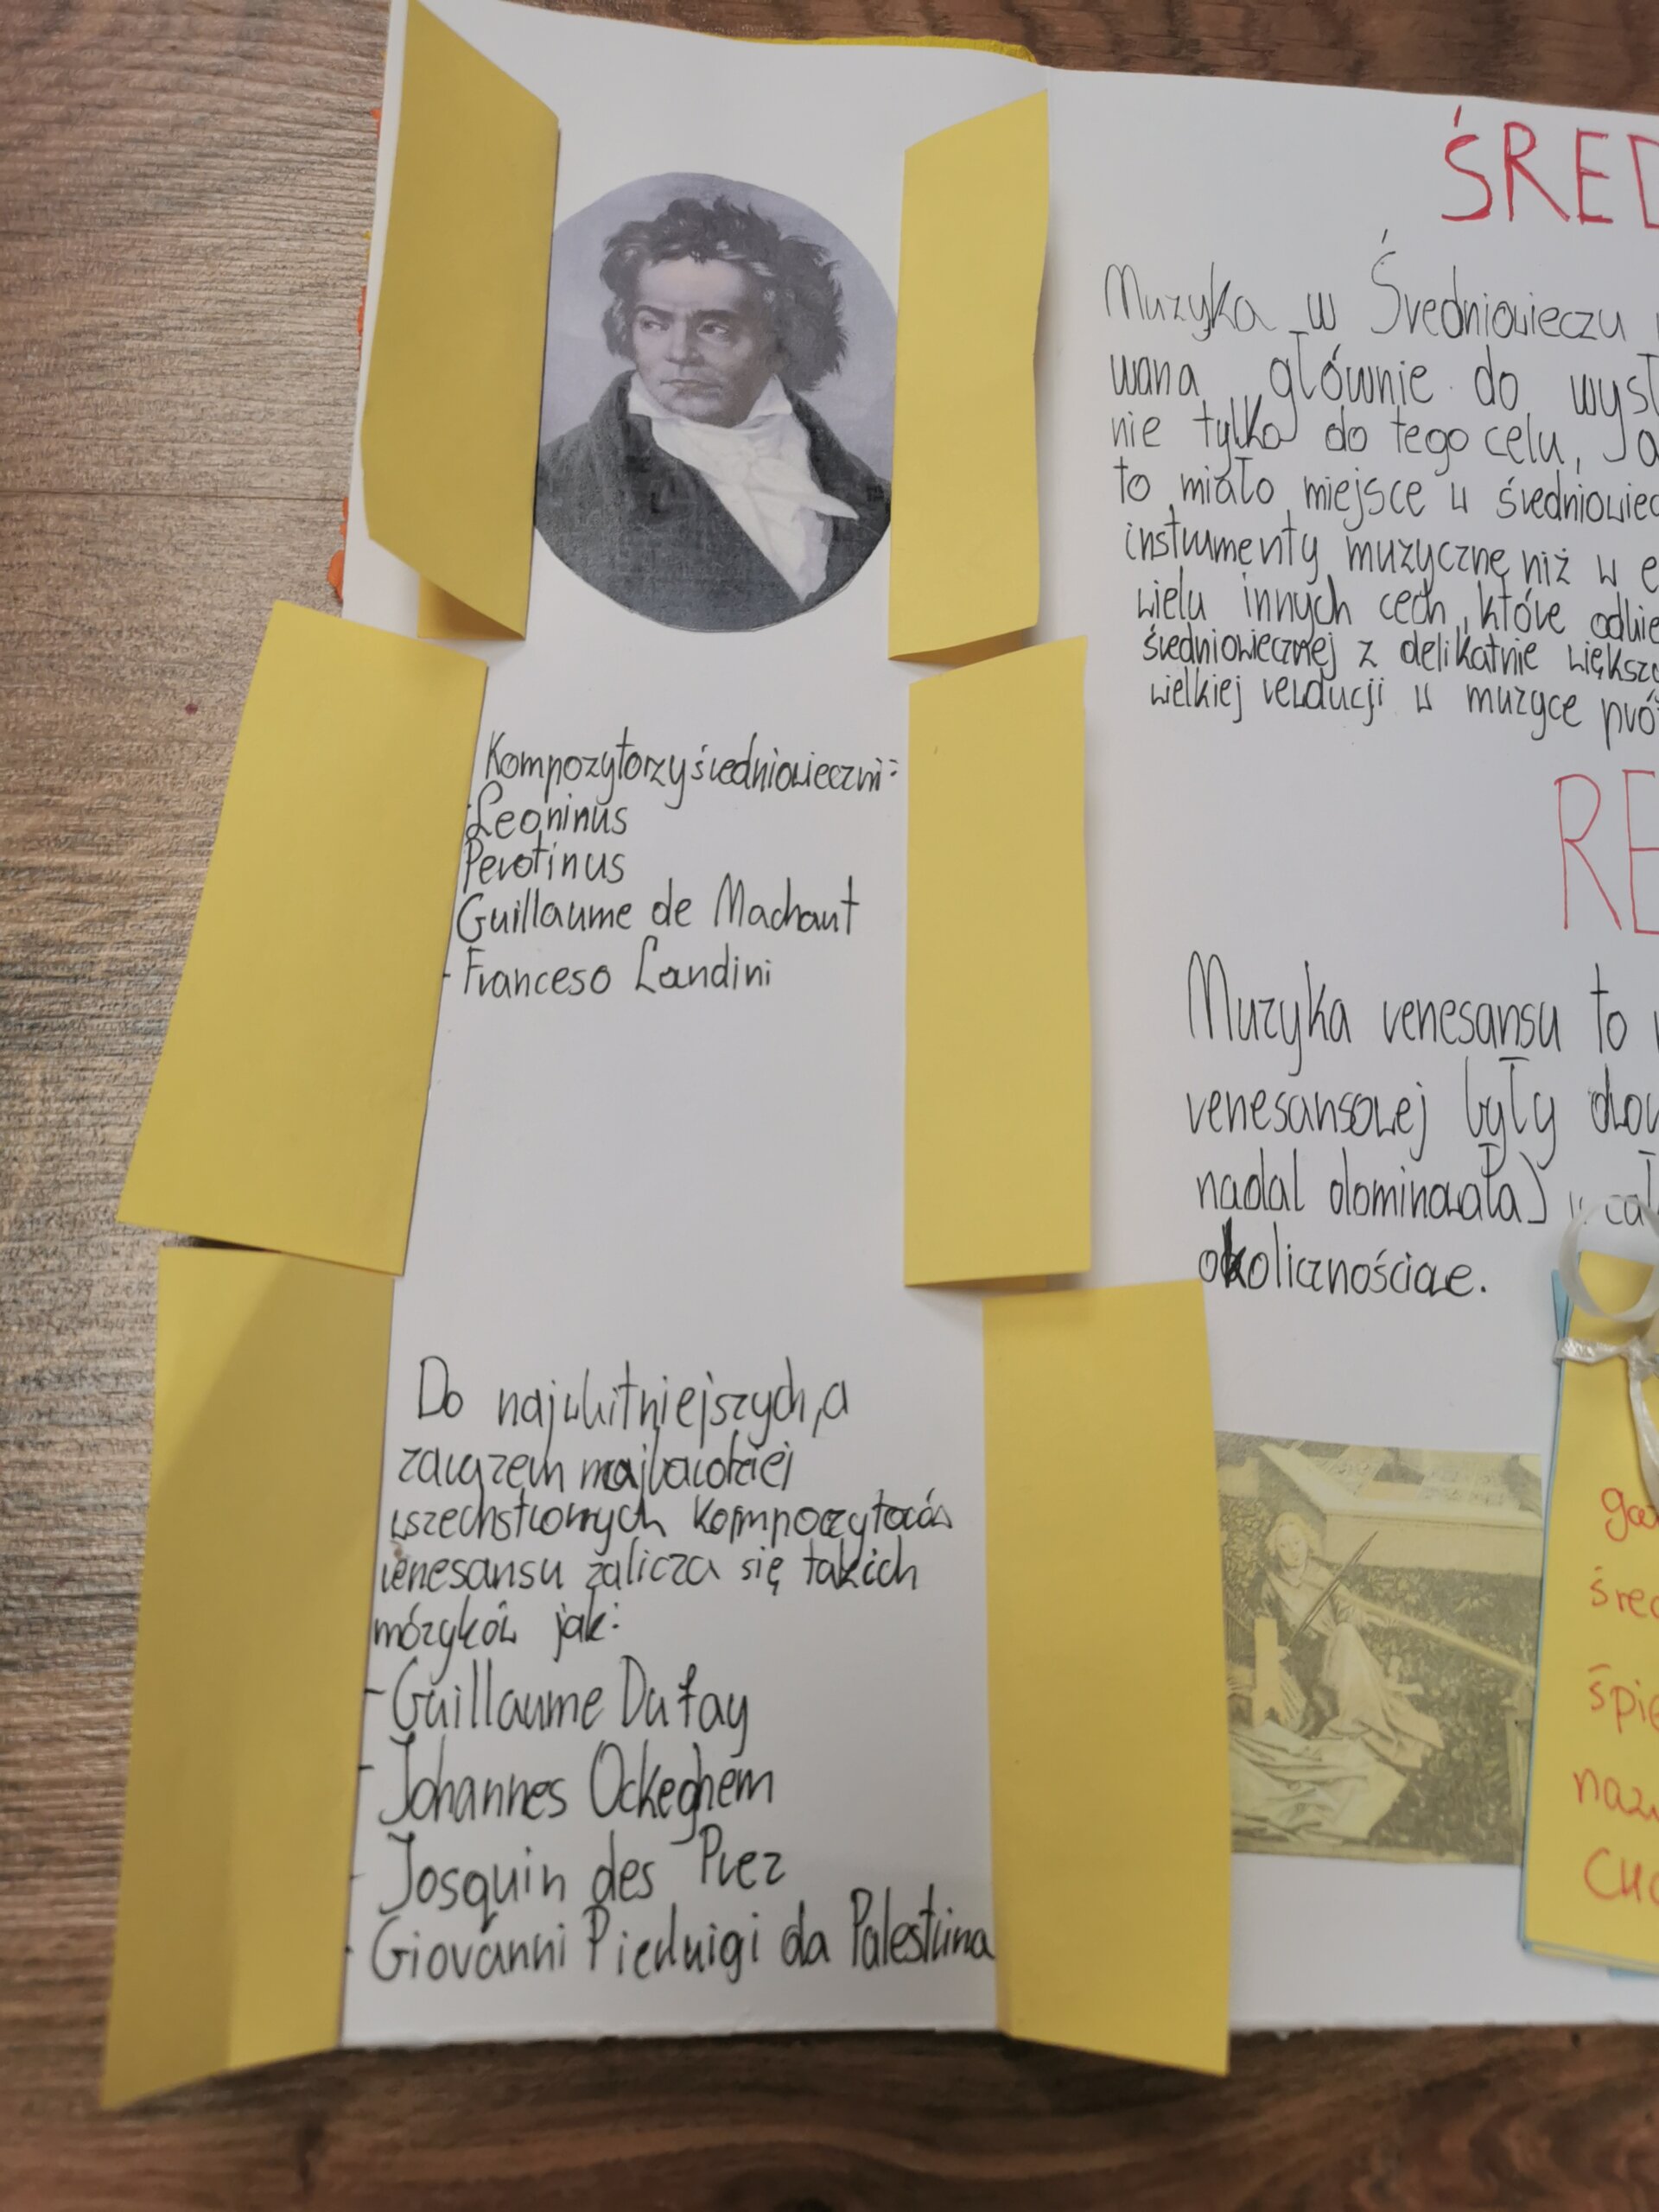 Kompozytorzy średniowieczni:
Leoninus
Perotinus
Guillaume de Machaut
- Franceso Landini
Do najwbitniejszych, a
zarazem najbardziej
wszechstronnych kompozytorów
renesansu zalicza się takich
mózyków jak:
- Guillaume Dufay
- Johannes Ockeghem
- Josquin des Prez
- Giovanni Pierluigi da Palestrina
ŚRED
Muzyka w Średniowieczu
wana głównie do wysł
nie tylko do tego celu, Ja
to miało miejsce w średniowiec
instrumenty muzyczne niż w e
wielu innych cech, które odbie
średniowiecznej z delikatnie większ
wielkiej rewolucji w muzyce pró
RE
Muzyka renesansu to
renesansowej były
nadal dominowała)
okolicznościae.
ga
śred
śpie
naz
CHO